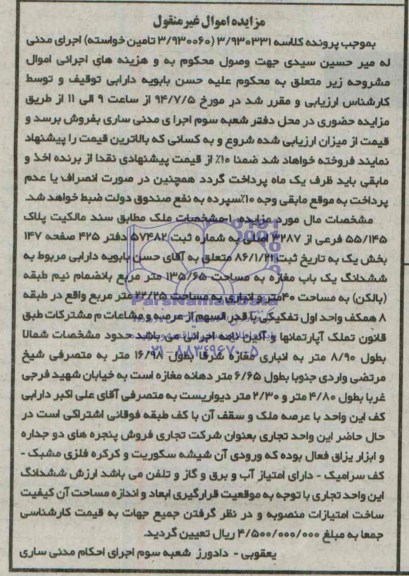 مزایده اموال غیر منقول
بموجب پرونده کلاسه ۳/۹۳۰۳۳۱ (۳/۹۳۰۰۶۰ تامین خواسته) اجرای مدنی
له میر حسین سیدی جهت وصول محکوم به و هزینه های اجرائی اموال
مشروحه زیر متعلق به محکوم علیه حسن بابویه دارابی توقیف و توسط
کارشناس ارزیابی و مقرر شد در مورخ ۹۴/۷/۵ از ساعت ۹ الی ۱۱ از طریق
مزایده حضوری در محل دفتر شعبه سوم اجرا ی مدنی ساری بفروش برسد و
قیمت از میزان ارزیابی شده شروع و به کسانی که بالاترین قیمت را پیشنهاد
نمایند فروخته خواهاد شد ضمنا ۱۰٪ از قیمت پیشنهادی نقدا از برنده اخذ و
مابقی باید ظرف یک ماه پرداخت گردد همچنین در صورت انصراف یا عدم
پرداخت به موقع مابقی وجه ۱۰٪سپرده به نفع صندوق دولت ضبط خواهد شد.
مشخصات مال مورد مزایده: ۱-مشخصات ملک مطابق سند مالکیت پلاک
۵۵/۱۴۵ فرعی از ۳۲۸۷ اصلی به شماره ثبت ۵۷۴۸۲ دفتر ۴۲۵ صفحه ۱۴۷
بخش یک به تاریخ ثبت ۸۶/۱/۲۱ متعلق به آقای حسن بابویه دارابی مربوط به
ششدانگ یک باب مغازه به مساحت ۱۳۵/۶۵ متر مربع بانضمام نیم طبقه
(بالکن) به مساحت ۴۰ متر و انباری به مساحت ۲۲/۲۵ متر مربع واقع در طبقه
۸ همکف واحد اول تفکیکی با قدر السهم از عرصه و مشاعات م مشترکات طبق
قانون تملک آپارتمانها و آئین نامه اجرائی می باشد حدود مشخصات شمالا
بطول ۸/۹۰ متر به انباری مغازه شرقا بطول ۱۶/۹۸ متر به متصرفی شیخ
مرتضی واردی جنوبا بطول ۶/۶۵ متر دهانه مغازه است به خیابان شهید فرجی
غربا بطول ۴/۸۰ متر و ۲/۳۰ متر دیواریست به متصرفی آقای علی اکبر دارابی
کف این واحد با عرصه ملک و سقف آن با کف طبقه فوقانی اشتراکی است در
حال حاضر این واحد تجاری بعنوان شرکت تجاری فروش پنجره های دو جداره
و ابزار یراق فعال بوده که ورودی آن شیشه سکوریت و کرکره فلزی مشبک -
کف سرامیک - دارای امتیاز آب و برق و گاز و تلفن می باشد ارزش ششدانگ
این واحد تجاری با توجه به موقعیت قرارگیری ابعاد و اندازه مساحت آن کیفیت
ساخت امتیازات منصوبه و در نظر گرفتن جمیع جهات به قیمت کارشناسی
جمعا به مبلغ ۴/۵۰۰/۰۰۰/۰۰۰ ریال تعیین گردید.
یعقوبی - دادورز شعبه سوم اجرای احکام مدنی ساری